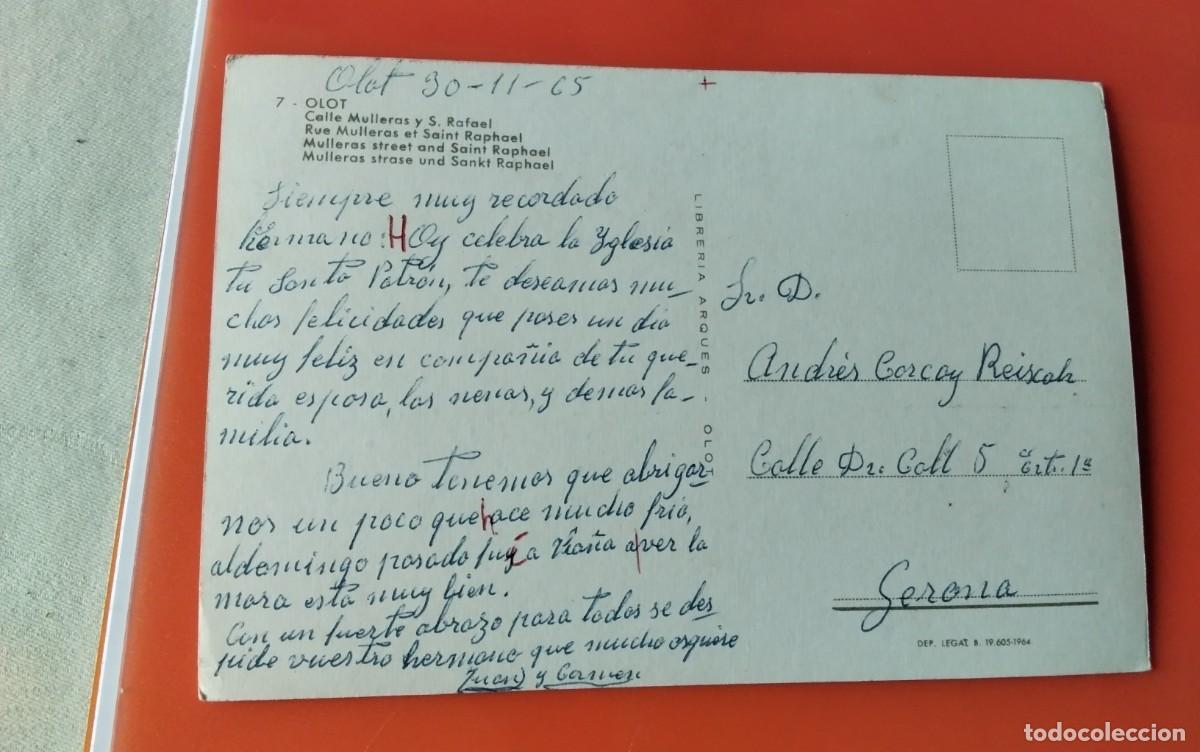 Olot 30-11-65
7 - OLOT
Calle Mulleras y S. Rafael
Rue Mulleras et Saint Raphael
Mulleras street and Saint Raphael
Mulleras strase und Sankt Raphael
Siempre muy recordado
hermano: HOy celebra la Yglesia
tu Santo Patrón, te deseamos mu-
chas felicidades que pases un dia
muy feliz en compañia de tu que-
rida esposa, las nenas, y demas fa-
milia.
Bueno tenemos que abrigar-
nos un poco que hace mucho frio,
al domingo pasado fuy a a ver la
mara esta muy bien.
Con un fuerte abrazo para todos se des
pide vuestro hermano que mucho
Juan y Carmen
LIBRERIA ARQUES - OLOT
Sr. D.
Andrés Corcoy
Calle Dr. Coll 5 1ª
Gerona
DEP. LEGAL B. 19.605-1964
todocoleccion